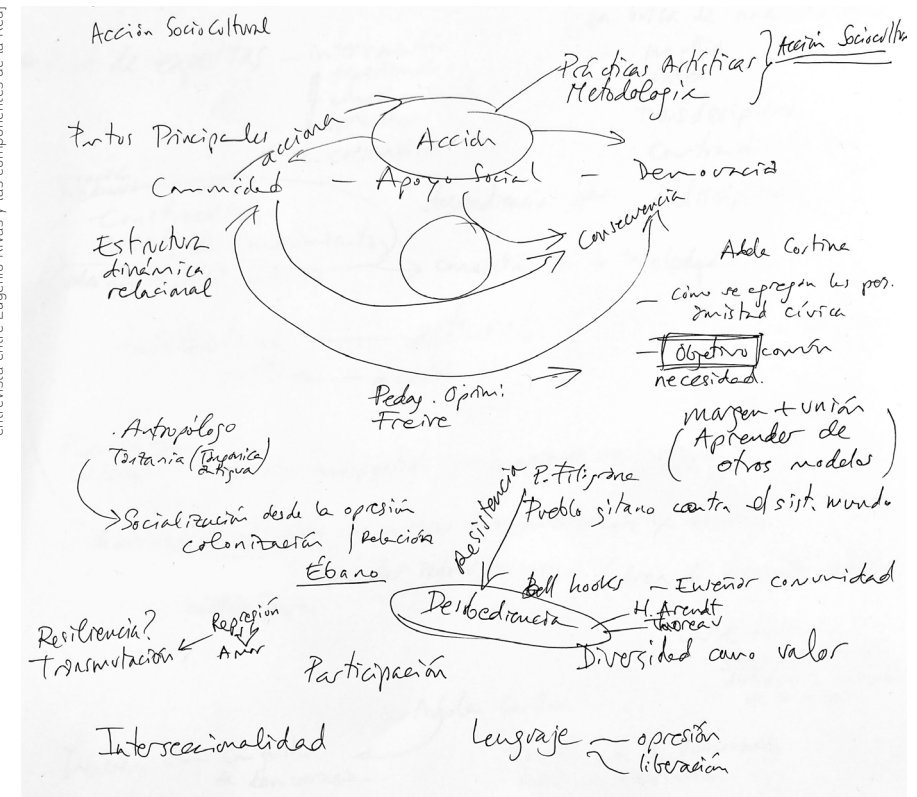 Acción SocioCultural
Prácticas Artísticas
Metodología
Acción Sociocultu
Puntos Principales
acciona
Acción
Comunidad – Apoyo Social – Democracia
Consecuencia
Estructura
dinámica
relacional
Adela Cortina
– Cómo se agregan las per.
amistad cívica
– Objetivo común
necesidad.
Pedag. Oprimi.
Freire
margen + unión
(Aprender de
otros modelos)
. Antropólogo
Tanzania (Tanganica
antigua)
Socialización desde la opresión
colonización / Relación
Ébano
Resistencia
P. Filigrana
Pueblo gitano contra el sist. mundo
bell hooks – Enseñar comunidad
Desobediencia
H. Arendt
Thoreau
Diversidad como valor
Resiliencia?
Transmutación
Represión
Amor
Participación
Interseccionalidad
Lenguaje – opresión
liberación
entrevista entre Eugenio Rivas y las componentes de la Red